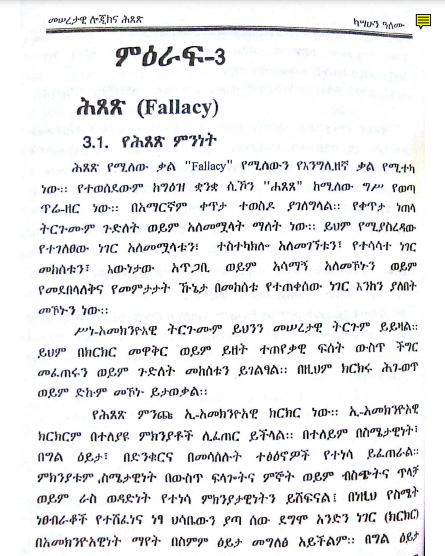 መሠረታዊ ሎጂክና ሕጸጽ ካሣሁን ዓለሙ
ምዕራፍ-3
ሕጸጽ (Fallacy)
3.1. የሕጸጽ ምንነት
ሕጸጽ የሚለው ቃል "Fallacy" የሚለውን የእንግሊዘኛ ቃል የሚተካ
ነው። የተወሰደውም ከግዕዝ ቋንቋ ሲኾን "ሐጸጸ" ከሚለው ግሥ የወጣ
ጥሬ-ዘር ነው። በአማርኛም ቀጥታ ተወስዶ ያገለግላል። የቀጥታ ነጠላ
ትርጉሙም ጉድለት ወይም አለመሟላት ማለት ነው። ይህም የሚያስረዳው
የተገለፀው ነገር አለመሟላቱን፣ ተስተካክሎ አለመገኘቱን፣ የተሳሳተ ነገር
መከሰቱን፣ እውነታው አጥጋቢ ወይም አሳማኝ አለመኾኑን ወይም
የመደበላለቅና የመምታታት ኹኔታ በመከሰቱ የተጠቀሰው ነገር እንከን ያለበት
መኾኑን ነው።
ሥነ-አመክንዮአዊ ትርጉሙም ይህንን መሠረታዊ ትርጉም ይይዛል።
ይህም በክርክር መዋቅር ወይም ይዘት ተጠየቃዊ ፍሰት ውስጥ ችግር
መፈጠሩን ወይም ጉድለት መከሰቱን ይገልፃል። በዚህም ክርክሩ ሕገ-ወጥ
ወይም ድኩም መኾኑ ይታወቃል።
የሕጸጽ ምንጩ ኢ-አመክንዮአዊ ክርክር ነው። ኢ-አመክንዮአዊ
ክርክርም በተለያዩ ምክንያቶች ሊፈጠር ይችላል። በተለይም በስሜታዊነት፣
በግል ዕይታ፣ በድንቁርና በመሳሰሉት ተፅዕኖዎች የተነሳ ይፈጠራል።
ምክንያቱም ,ስሜታዊነት በውስጥ ፍላጐትና ምኞት ወይም ብስጭትና ጥላቻ
ወይም ራስ ወዳድነት የተነሳ ምክንያታዊነትን ይሸፍናል፤ በነዚህ የስሜት
ነፀብራቆች የተሸፈነና ነፃ ህሳቤውን ያጣ ሰው ደግሞ አንድን ነገር (ክርክር)
በአመክንዮአዊነት ማየት በስምም ዕይታ መግለፅ አይችልም። በግል ዕይታ